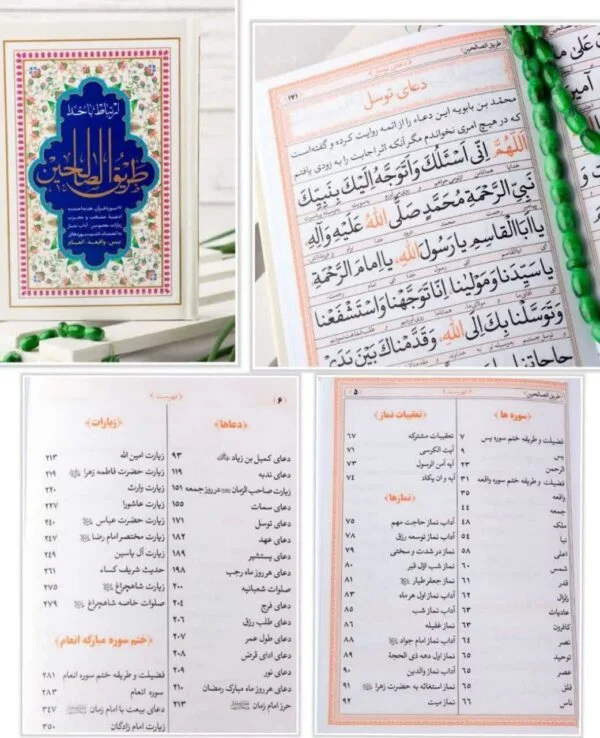 ارتباط با خدا
طریق الصالحین
۲۰ سوره قرآن، هدیه هستند
ادعیه منتخب و مجرب
زیارات مخصوص، آداب نماز
به انضمام ختم سوره‌های
یس، واقعه، انعام
طریق الصالحین
۱۷۱
دعای توسل
محمّد بن بابویه این دعاء را از ائمه روایت کرده و گفته است
که در هیچ امری نخواندم مگر آنکه اثر اجابت را به زودی یافتم
اَللّٰهُمَّ اِنّی اَسْئَلُكَ وَاَتَوَجَّهُ اِلَیْكَ بِنَبِیِّكَ
نَبِیِّ الرَّحْمَةِ مُحَمَّدٍ صَلَّی اللهُ عَلَیْهِ وَآلِهِ
یا اَبَاالْقاسِمِ یا رَسُولَ اللهِ، یا اِمامَ الرَّحْمَةِ
یا سَیِّدَنا وَمَوْلینا اِنّا تَوَجَّهْنا وَاسْتَشْفَعْنا
وَتَوَسَّلْنا بِكَ اِلَی اللهِ، وَقَدَّمْناكَ بَیْنَ یَدَیْ
حاجاتنا
طریق الصالحین
فهرست
۵
سوره ها
فضیلت و طریقه ختم سوره یس ۷
یس ۹
الرحمن ۲۳
فضیلت و طریقه ختم سوره واقعه ۳۱
واقعه ۳۵
جمعه ۴۴
ملک ۴۸
نبا ۵۴
اعلی ۵۸
شمس ۶۰
قدر ۶۱
زلزال ۶۲
عادیات ۶۳
کافرون ۶۳
نصر ۶۴
توحید ۶۵
عصر ۶۵
فلق ۶۵
ناس ۶۶
تعقیبات نماز
تعقیبات مشترکه ۶۷
آیت الکرسی ۷۱
آیه آمن الرسول ۷۳
آیه و ان یکاد ۷۴
نمازها
آداب نماز حاجت مهم ۷۵
آداب نماز توسعه رزق ۷۸
نماز در شدت و سختی ۷۹
نماز شب اوّل قبر ۸۰
نماز جعفر طیار ۸۱
آداب نماز اول هر ماه ۸۳
آداب نماز شب ۸۵
نماز غفیله ۸۶
آداب نماز امام جواد ۸۸
نماز اول دهه ذی الحجة ۸۹
آداب نماز والدین ۹۰
نماز استغاثه به حضرت زهرا ۹۱
نماز میت ۹۲
فهرست
۶
دعاها
دعای کمیل بن زیاد ۹۳
دعای ندبه ۱۱۹
زیارت صاحب الزمان در روز جمعه ۱۵۱
دعای سمات ۱۵۵
دعای توسل ۱۷۱
دعای عهد ۱۸۲
دعای یستشیر ۱۸۹
دعای هر روز ماه رجب ۱۹۸
صلوات شعبانیه ۲۰۰
دعای فرج ۲۰۴
دعای طلب رزق ۲۰۶
دعای طول عمر ۲۰۷
دعای ادای قرض ۲۰۸
دعای نور ۲۰۹
دعای هر روز ماه مبارک رمضان ۲۱۰
حرز امام زمان ۲۱۳
زیارات
زیارت امین الله ۲۱۳
زیارت حضرت فاطمه زهرا ۲۱۹
زیارت وارث ۲۲۰
زیارت عاشورا ۲۲۷
زیارت حضرت عباس ۲۴۰
زیارت مختصر امام رضا ۲۴۷
زیارت آل یاسین ۲۴۹
حدیث شریف کساء ۲۶۱
زیارت شاهچراغ ۲۷۵
صلوات خاصه شاهچراغ ۲۷۹
ختم سوره مبارکه انعام
فضیلت و طریقه ختم سوره انعام ۲۸۱
سوره انعام ۲۸۳
دعای بیعت با امام زمان ۳۴۷
زیارت امام زادگان ۳۵۰